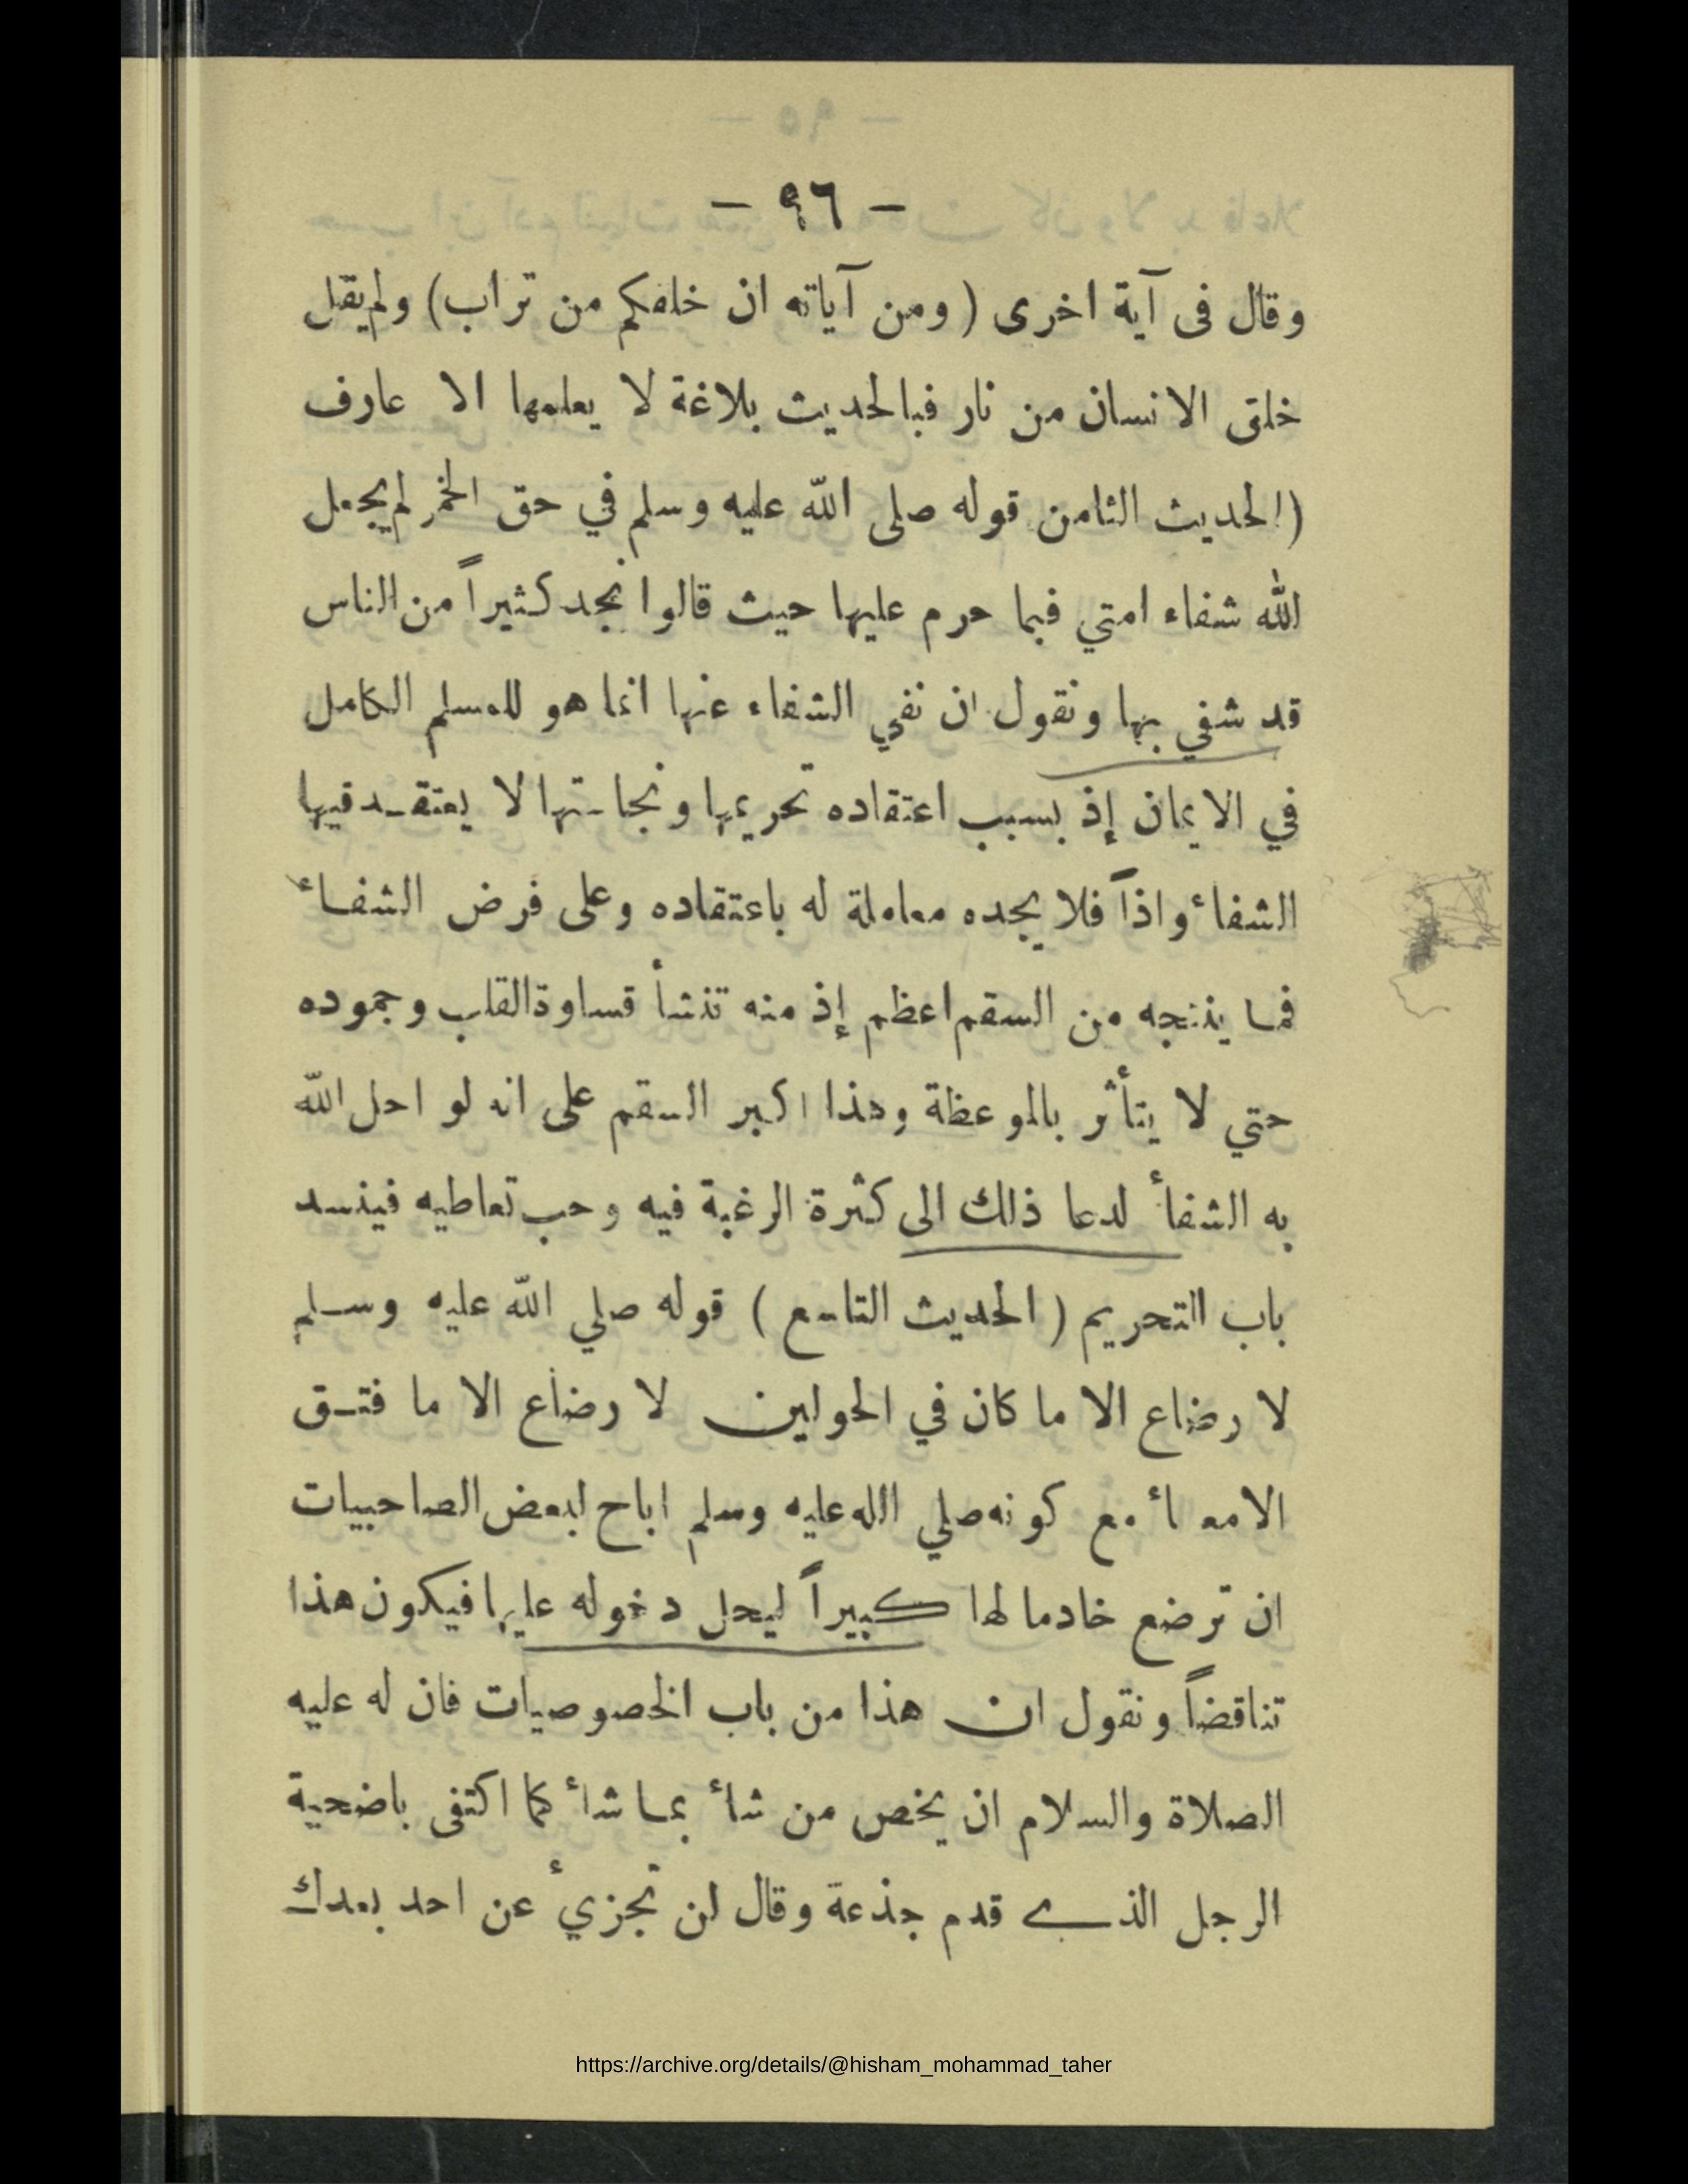 — ٩٦ —
وقال فى آية اخرى ( ومن آياته ان خلقكم من تراب) ولم يقل
خلق الانسان من نار فبالحديث بلاغة لا يعلمها الا عارف
(الحديث الثامن قوله صلى الله عليه وسلم في حق الخمر لم يجعل
الله شفاء امتي فيما حرم عليها حيث قالوا نجد كثيراً من الناس
قد شفي بها ونقول ان نفي الشفاء عنها انما هو للمسلم الكامل
في الايمان إذ بسبب اعتقاده تحريمها ونجاستها لا يعتقد فيها
الشفاء واذاً فلا يجده معاملة له باعتقاده وعلى فرض الشفاء
فما ينتجه من السقم اعظم إذ منه تنشأ قساوة القلب وجموده
حتي لا يتأثر بالموعظة وهذا اكبر السقم على انه لو احل الله
به الشفأ لدعا ذلك الى كثرة الرغبة فيه وحب تعاطيه فينسد
باب التحريم ( الحديث التاسع ) قوله صلي الله عليه وسلم
لا رضاع الا ما كان في الحولين لا رضاع الا ما فتق
الامعاء مع كونه صلي الله عليه وسلم اباح لبعض الصاحبيات
ان ترضع خادما لها كبيراً ليحل دخوله عليها فيكون هذا
تناقضاً ونقول ان هذا من باب الخصوصيات فان له عليه
الصلاة والسلام ان يخص من شأ بما شأ كما اكتفى باضحية
الرجل الذي قدم جذعة وقال لن تجزيأ عن احد بعدك
https://archive.org/details/@hisham_mohammad_taher